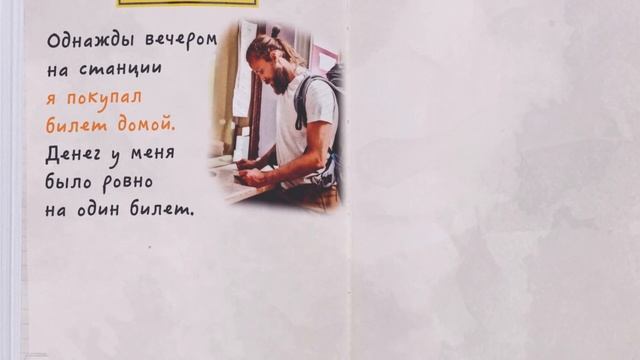 Однажды вечером
на станции
я покупал
билет домой.
Денег у меня
было ровно
на один билет.